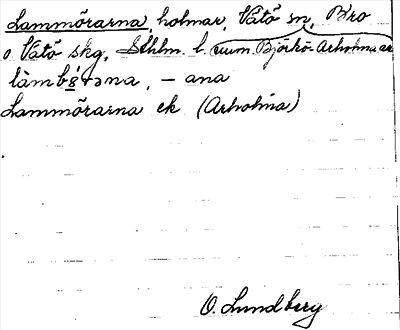 Lammörarna, holmar, Vätö sn, Bro
o Vätö skg, Sthlm. l. num. Björkö-Arholma
làmb rəna, - ana
Lammörarna ek (Arholma)
O. Lundberg